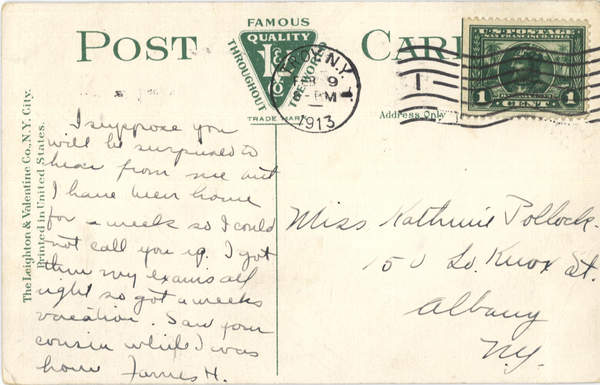 POST CARD
FAMOUS
QUALITY
THROUGHOUT
TRADE MARK
TROY, N.Y.
FEB 9
PM
1913
U.S. POSTAGE
SAN FRANCISCO
1 CENT 1
Address Only
The Leighton & Valentine Co., N.Y. City.
Printed in United States.
I suppose you
will be surprised to
hear from me but
I have been home
for a weeks so I could
not call you up. I got
thru my exams all
right so got a weeks
vacation. Saw your
cousin while I was
home James H.
Miss Kathrine Pollock.
150 So. Knox St.
Albany
N.Y.